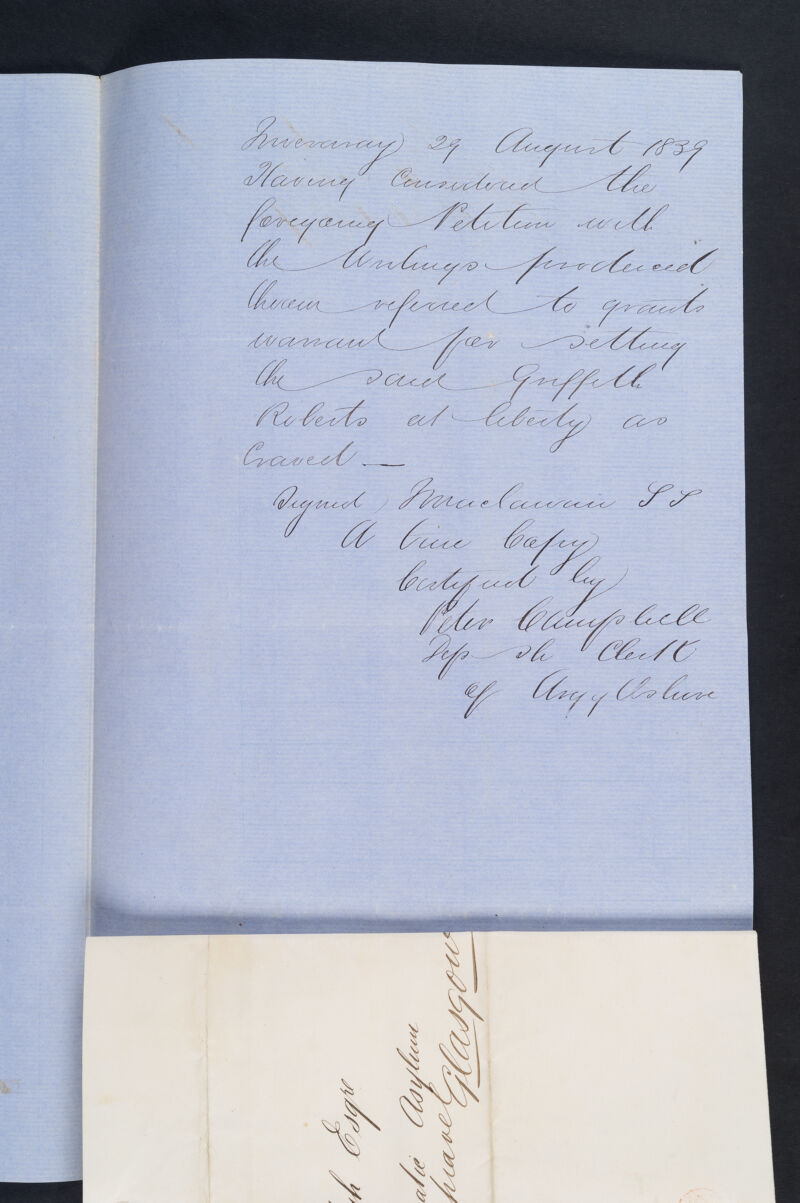 Inveraray 29 August 1839
Having Considered the
foregoing Petition with
the Writings produced
therein referred to grants
warrant for setting
the said Griffith
Roberts at liberty as
Craved —
Signed, SS
A True Copy
Certified by
Peter Campbell
Dep Sh Clerk
of Argyllshire
Esqre
Asylum
Glasgow